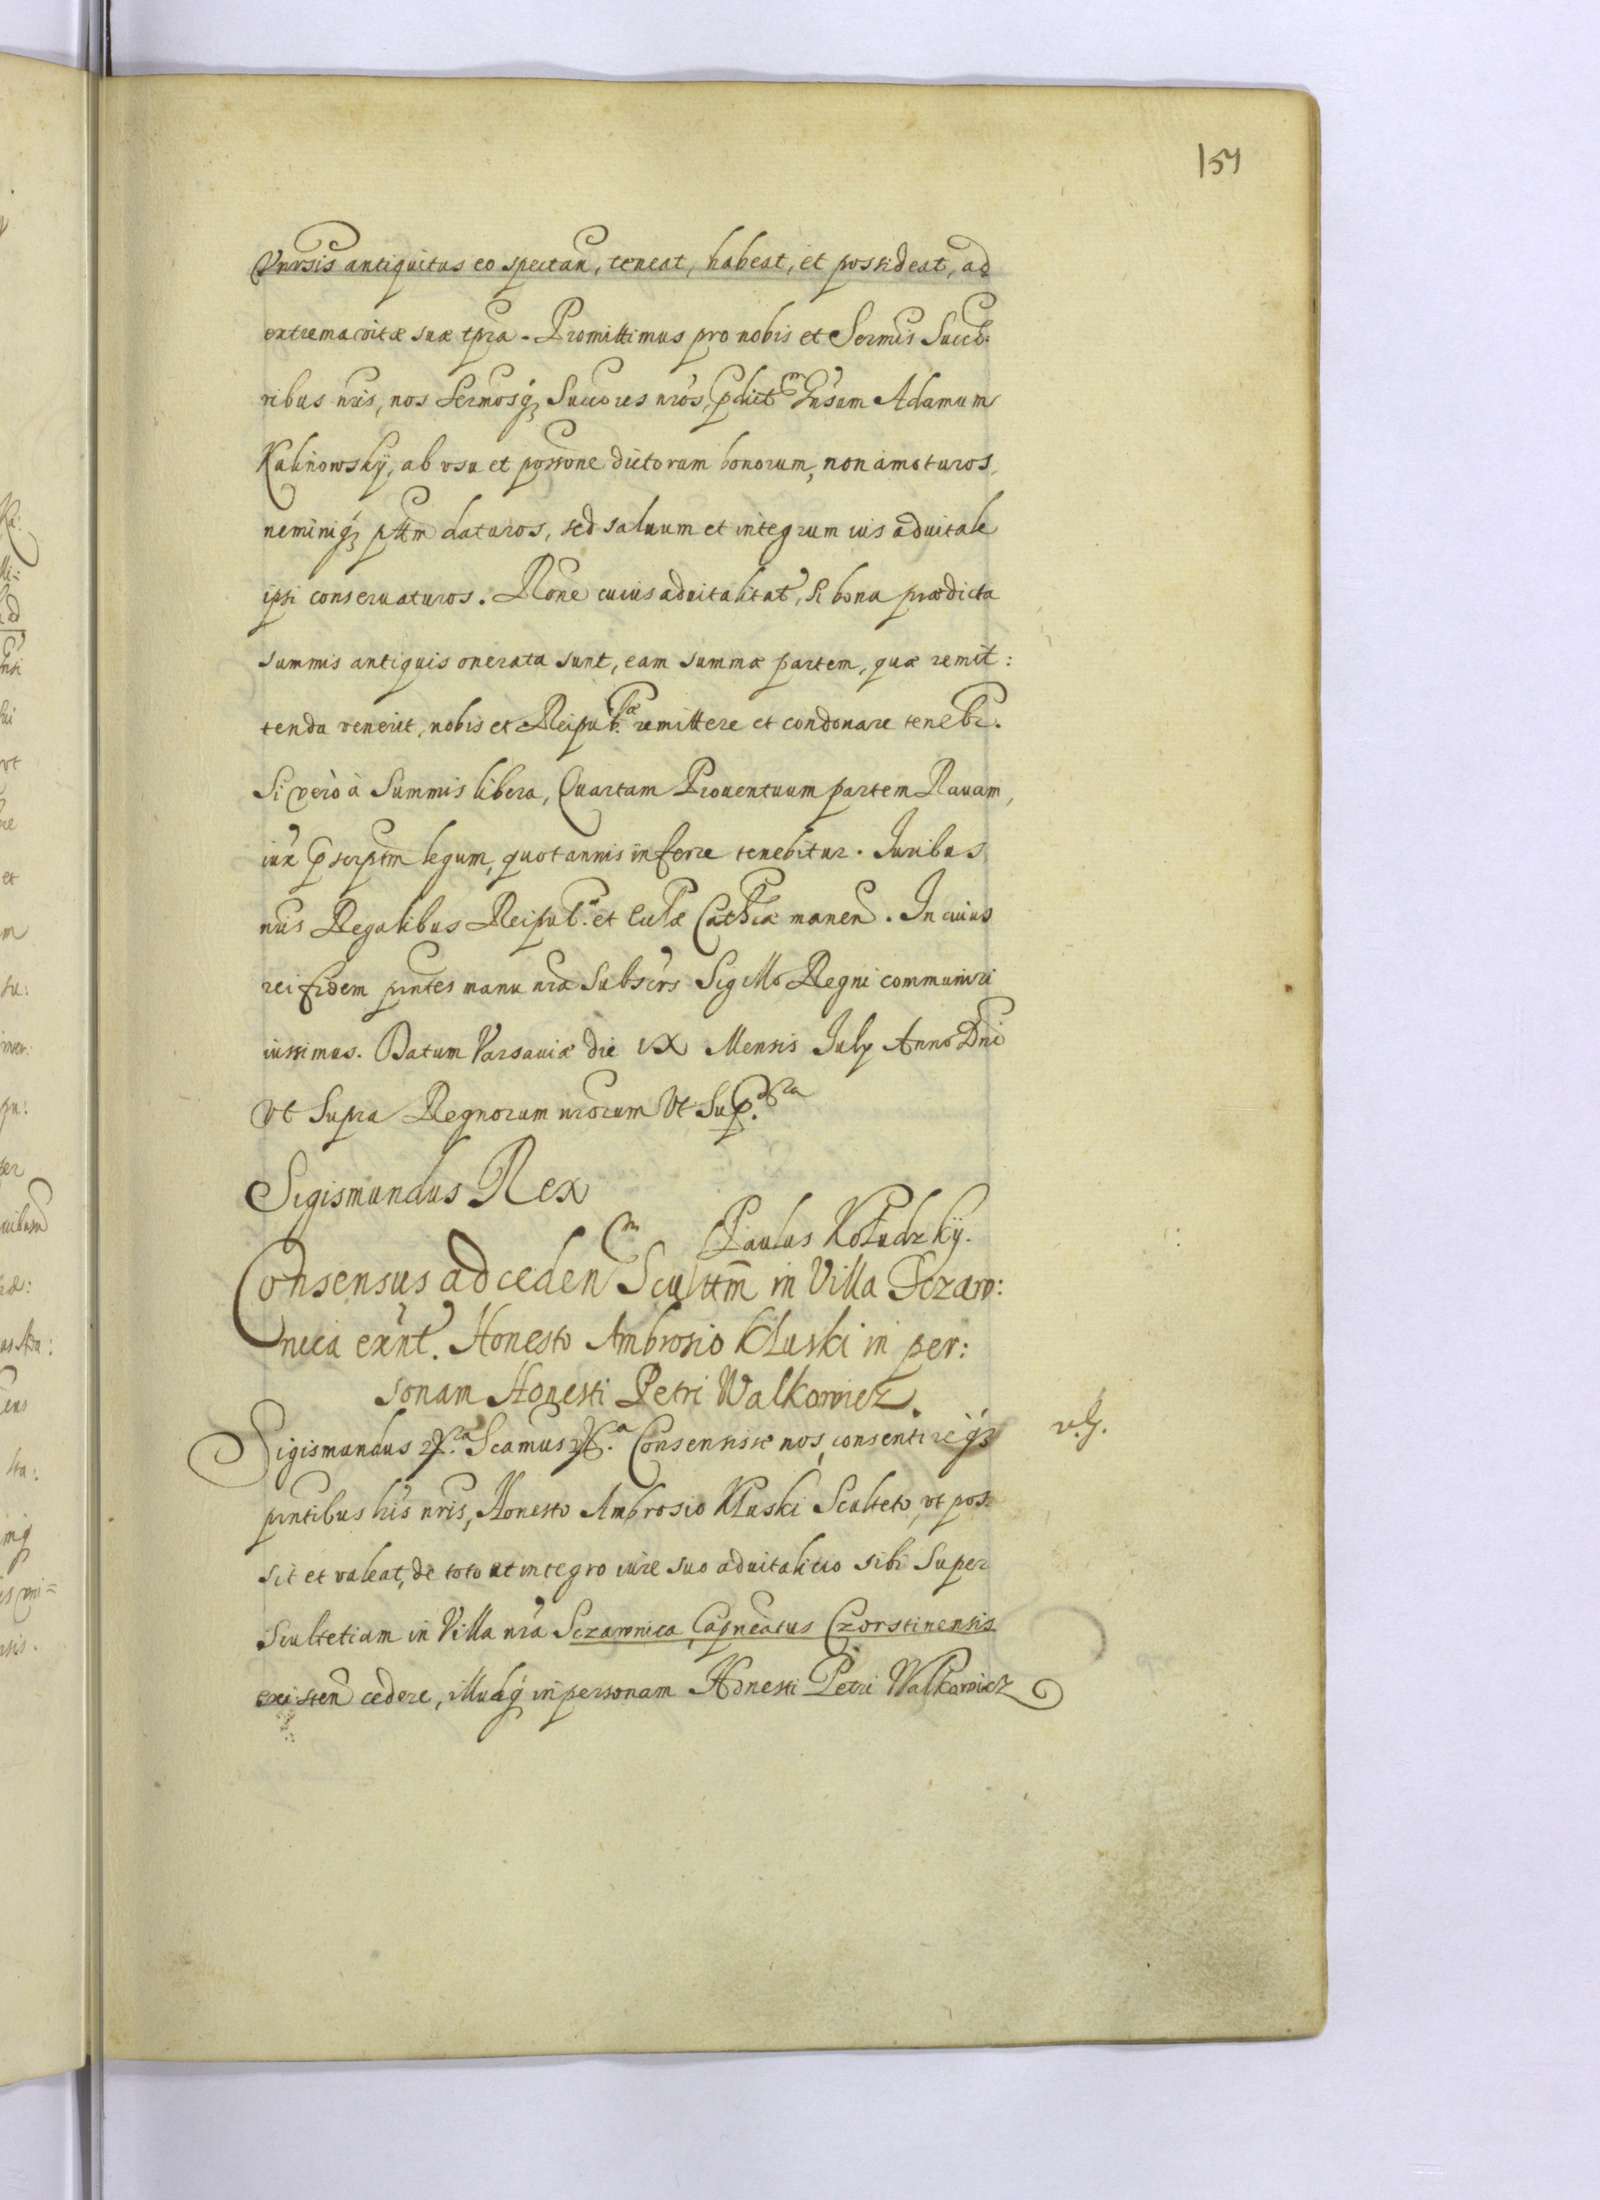 157
Vnrsis antiquitus eo spectan, teneat, habeat, et possideat, ad
extrema vitæ suæ tpra. Promittimus pro nobis et Sermis Succes:
ribus nris, nos Sermosq3 Succores nros, pdict m Gnsum Adamum
Kalinowskÿ, ab vsu et possone dictorum bonorum, non amoturos,
neminiq3 pttm daturos, sed saluum et integrum ius aduitale
ipsi conseruaturos. Rone cuius aduitalitat, si bona prædicta
summis antiquis onerata sunt, eam summæ partem, quæ remit:
tenda venerit, nobis et Reipub. cæ remittere et condonare tenebr.
Si verò à Summis libera, Quartam Prouentuum partem Rauam,
iux pscrptm legum, quotannis inferre tenebitur. Iuribus
nris Regalibus Reipub. et Ecclæ Cathcæ manen. In cuius
rei fidem pntes manu nra Subscrs Sigillo Regni communiri
iussimus. Datum Varsauiæ die IX Mensis July Anno Dni
vt Supra Regnorum nrorum Vt Sup. ra
Sigismundus Rex
Paulus Kołudzkÿ.
Consensus ad ceden m Scultttm in Villa Sczaw:
nica exnt. Honesto Ambrosio Kłuski in per:
sonam Honesti Petri Walkowicz.
Sigismundus &. ra Scamus &. a Consensisse nos, consentireq3
v. G.
pntibus his nris, Honesto Ambrosio Kłuski Sculteto, vt pos:
sit et valeat, de toto et integro iure suo aduitalitio sibi Super
Scultetiam in Villa nra Sczawnica Capneatus Czorstinensis
existen cedere, illudq in personam Honesti Petri Walkowicz